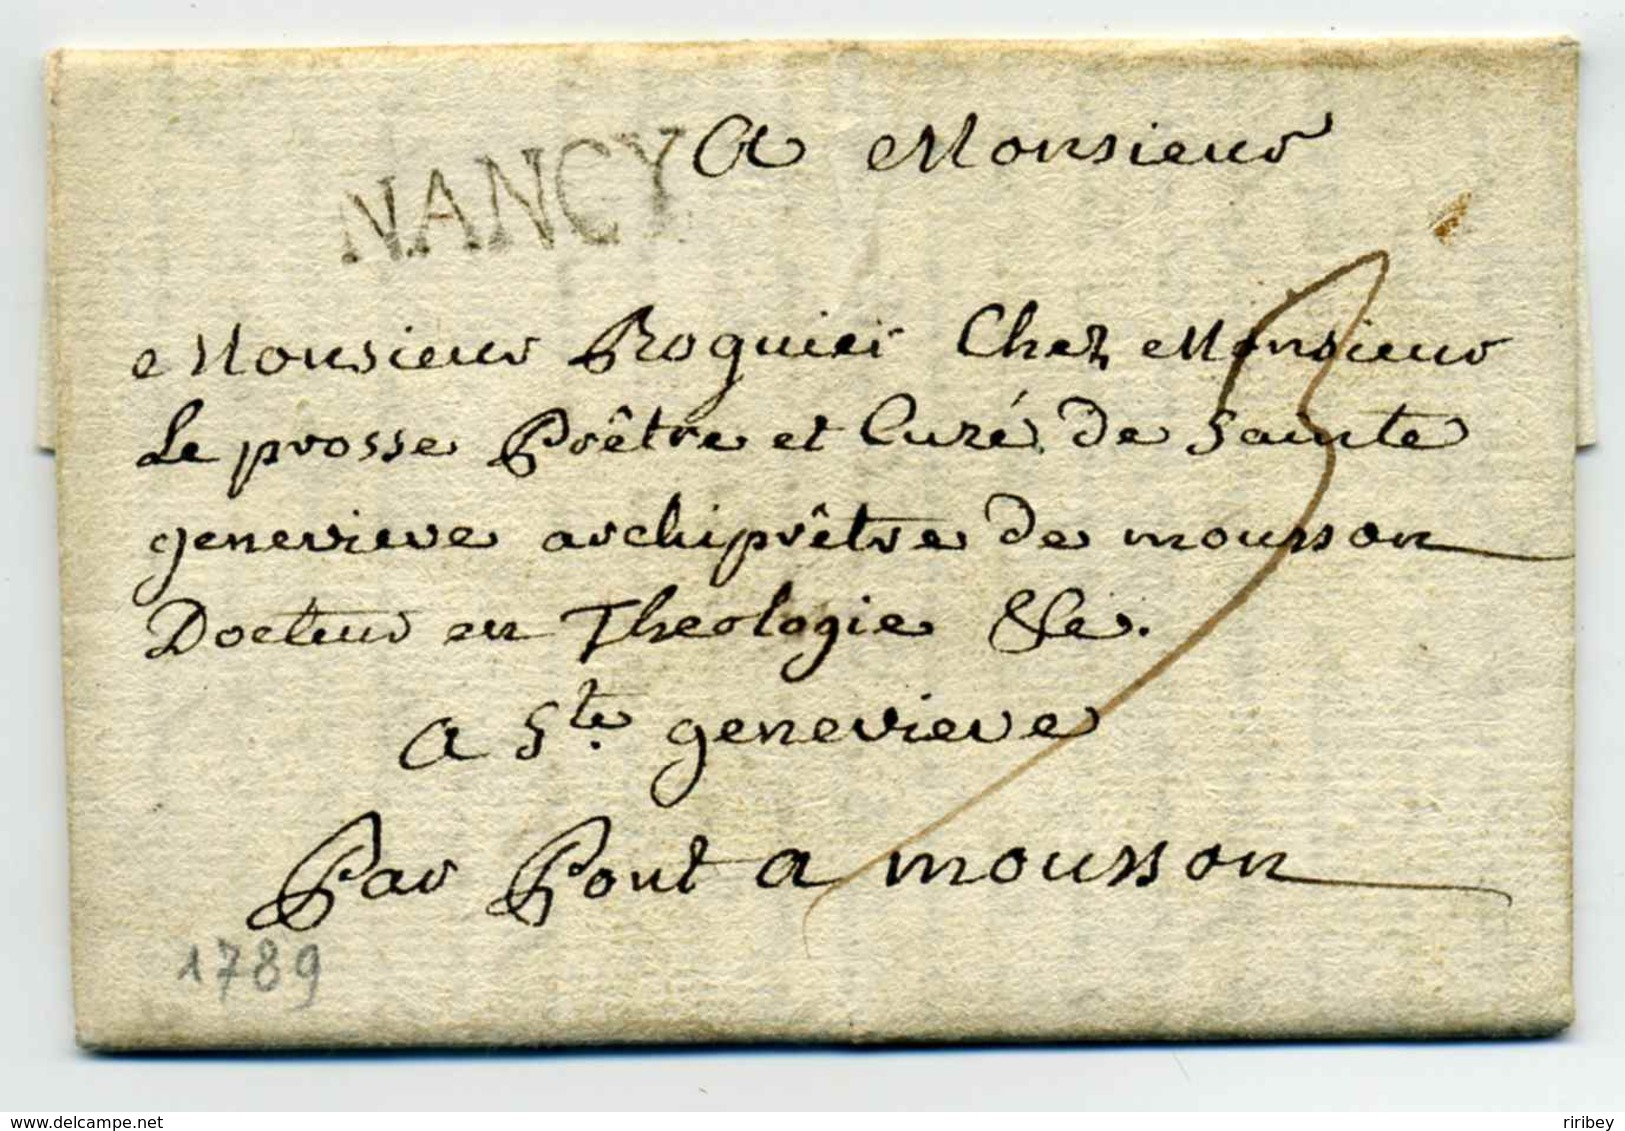 NANCY
a Monsieur
Monsieur Roguier Chez Monsieur
Le prosse Prêtre et Curé de Sainte
genevieve archiprêtre de mousson
Docteur en Theologie &c.
a Ste genevieve
Par Pont a mousson
3
1789
delcampe.net
riribey